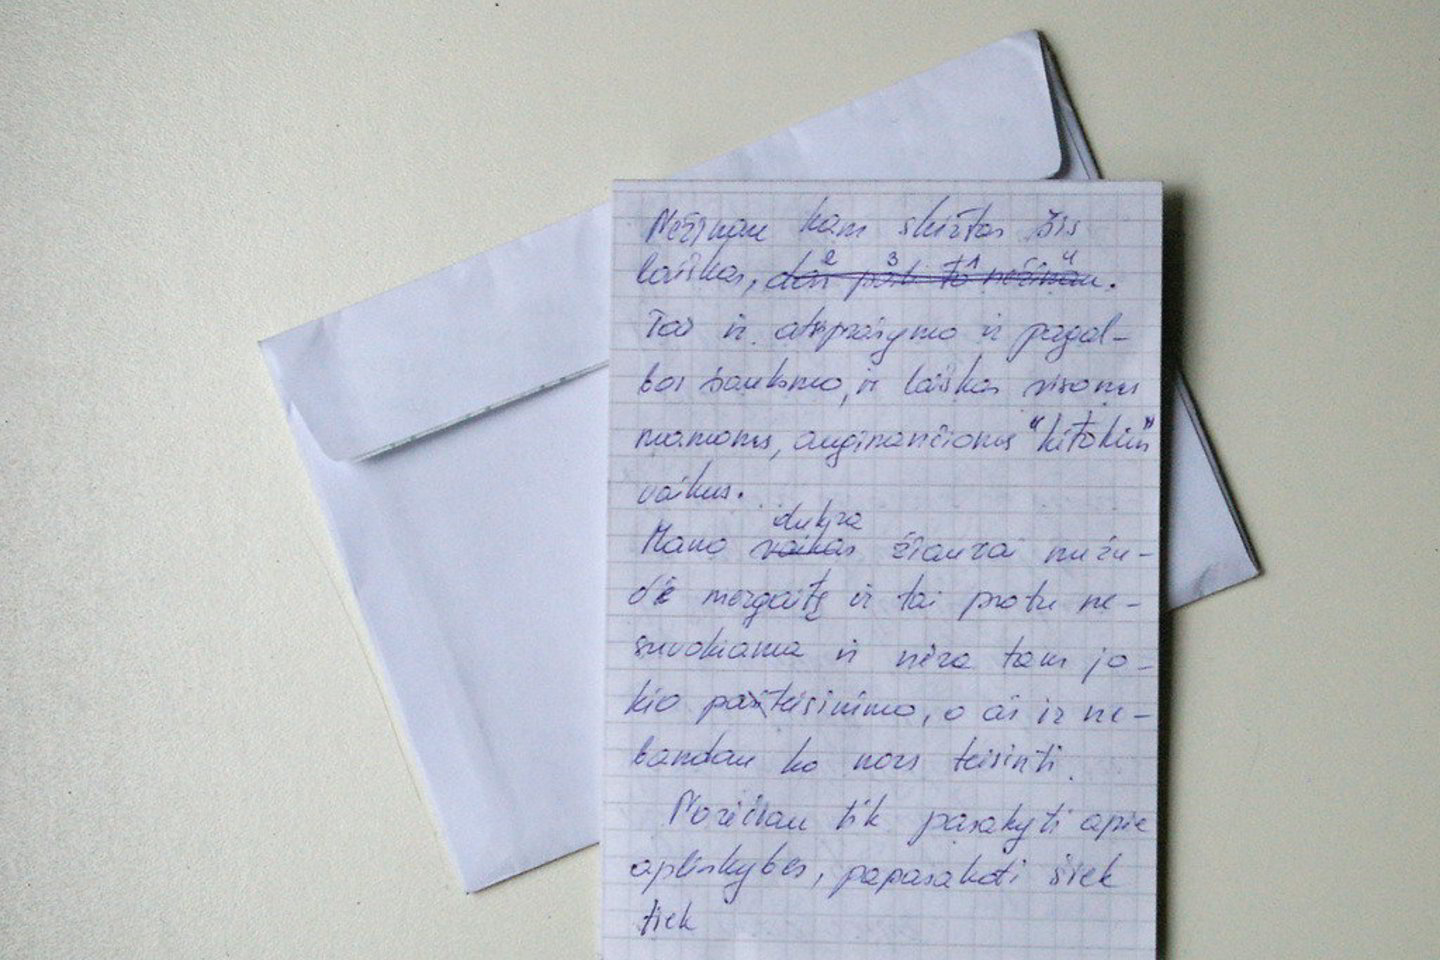 Nežinau kam skirtas šis
laiškas, dar pati to nežinau.
Tai ir atsiprašymo ir pagal-
bos šauksmo, ir laiškas visoms
mamoms, auginančioms "kitokius"
vaikus.
dukra
Mano vaikas žiauriai nužu-
dė mergaitę ir tai protu ne-
suvokiama ir nėra tam jo-
kio pateisinimo, o aš ir ne-
bandau ko nors teisinti.
Norėčiau tik pasakyti apie
aplinkybes, papasakoti šiek
tiek